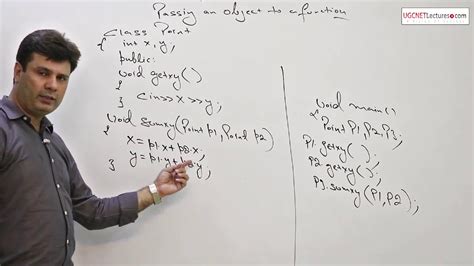 Passing an object to a function
UGCNETLectures.com
Class Point
{ int x,y;
public:
void getxy()
{ Cin>>x>>y;
}
Void sumxy(Point p1, Point p2)
{
x = p1.x+p2.x;
y = p1.y+p2.y;
}
Void main()
{ Point P1, P2, P3;
P1.getxy();
P2.getxy();
P3.sumxy(P1,P2);